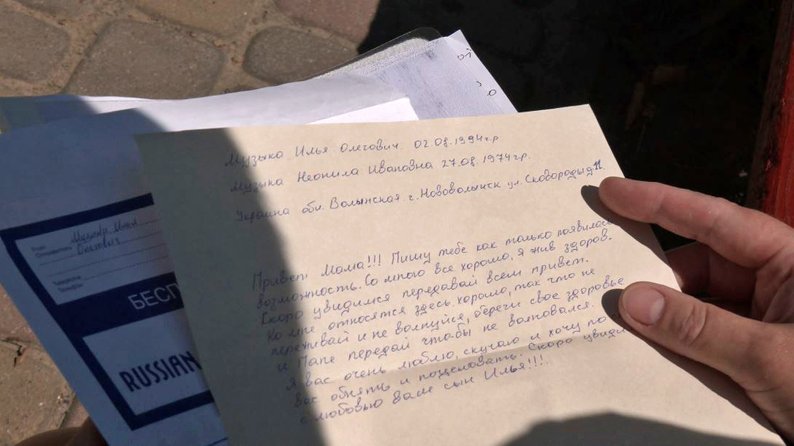 Музыка Илья Олегович. 02.08.1994г.р
Музыка Неонила Ивановна 27.08.1974г.р.
Украина обл. Волынская. г. Нововолынск ул. Сковороды д 11.
Привет Мама!!! Пишу тебе как только появилась
возможность. Со мной все хорошо, я жив здоров.
Скоро увидимся передавай всем привет.
Ко мне относятся здесь хорошо, так что не
переживай и не волнуйся, береги свое здоровье
и Папе передай чтобы не волновался.
Я вас очень люблю, скучаю и хочу
вас обнять и поцеловать. Скоро увиди
с любовью ваш сын Илья!!!
Музыка Илья
Олегович
БЕСП
RUSSIAN